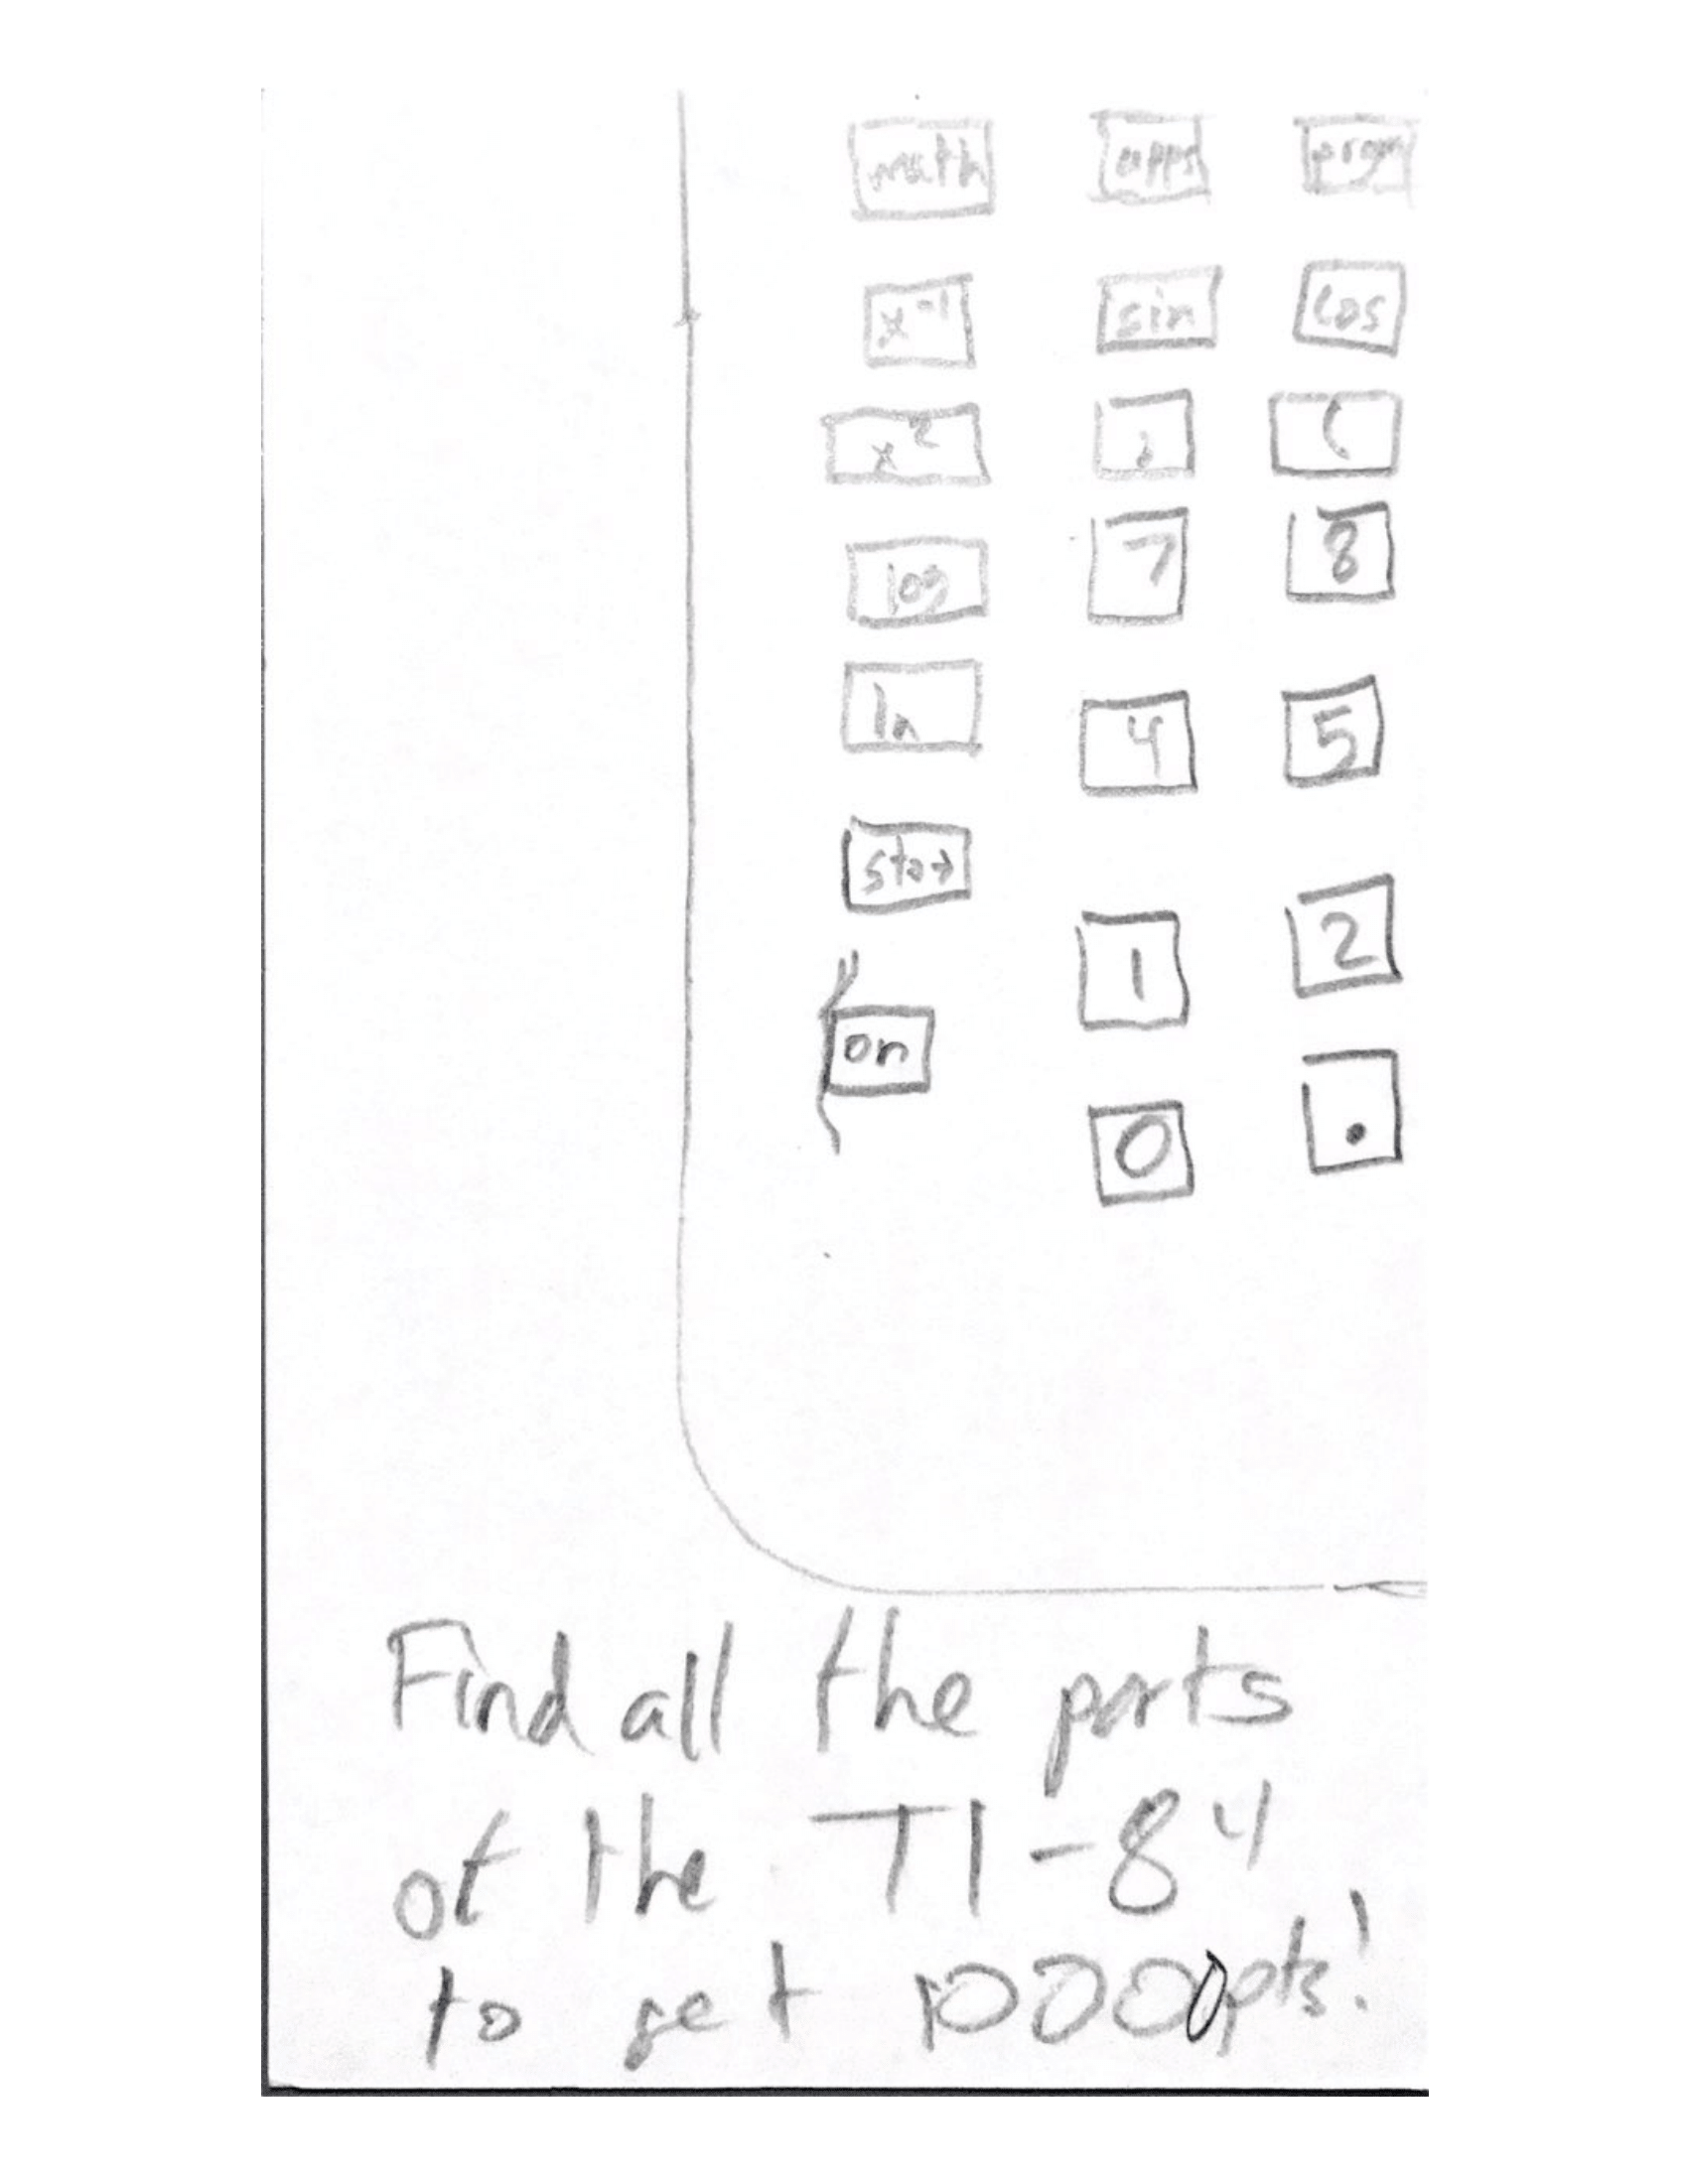 math apps prgm
x⁻¹ sin cos
x² , (
log 7 8
ln 4 5
sto→ 1 2
on 0 .
Find all the parts
of the TI-84
to get 10000pts!